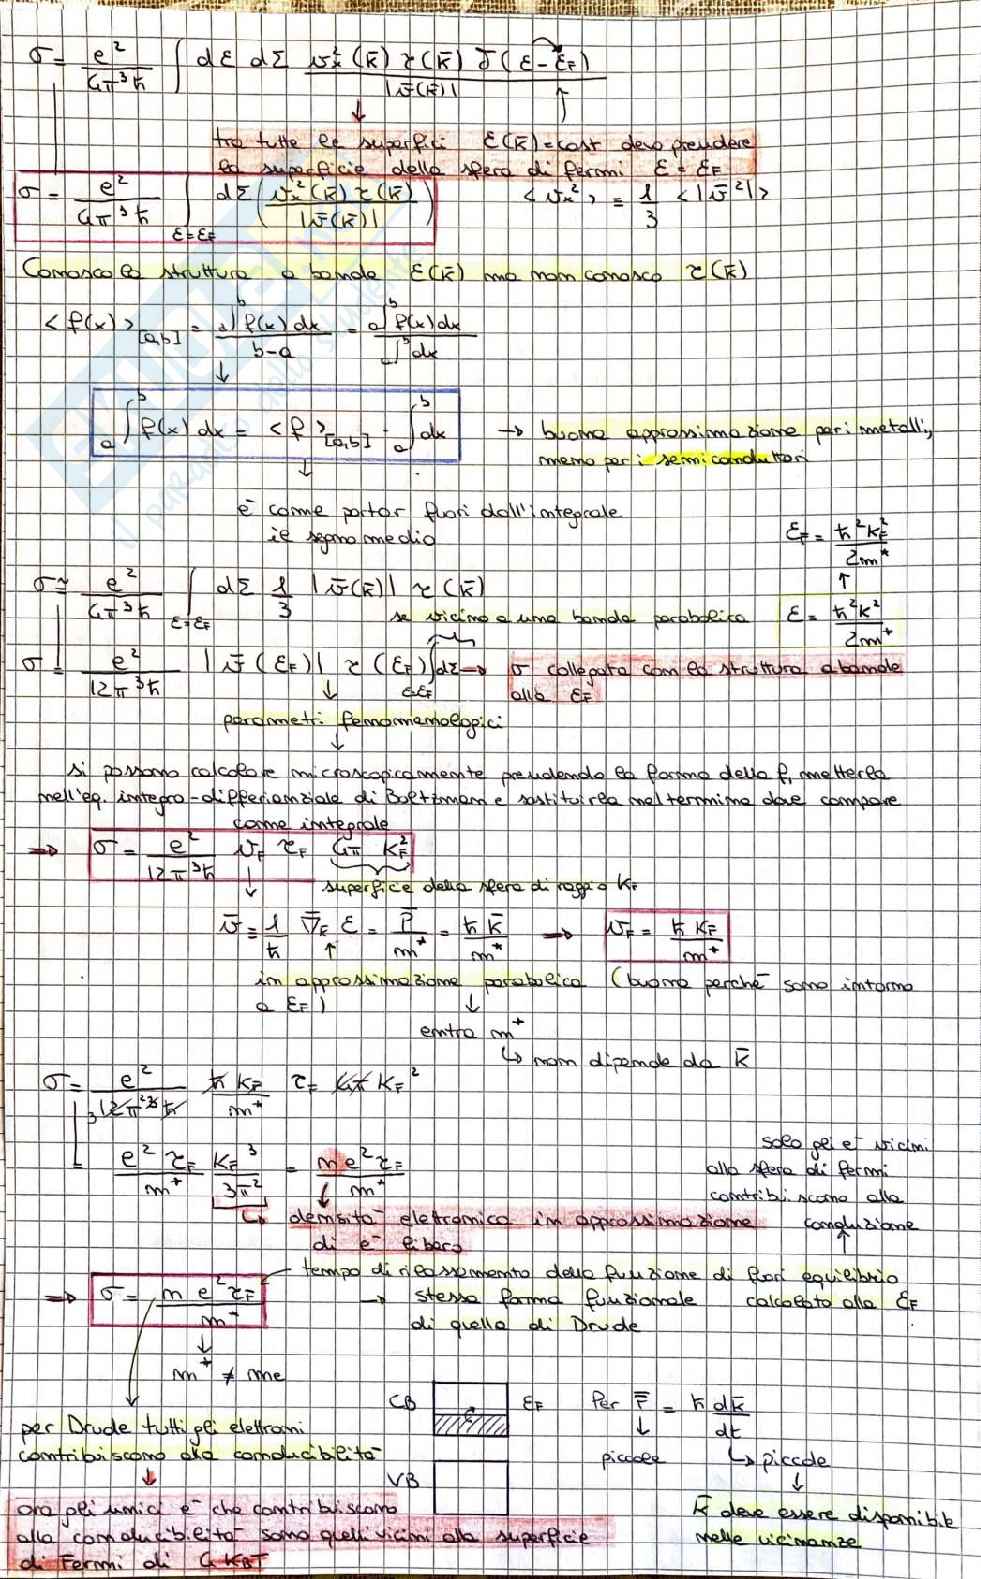 σ = e²/(4π³ħ) ∫ dε dΣ vₓ²(k̄) τ(k̄) δ(ε - ε_F) / |v̄(k̄)|
tra tutte le superfici ε(k̄)=cost devo prendere
la superficie della sfera di fermi ε = ε_F
σ = e²/(4π³ħ) ∫_{ε=ε_F} dΣ (vₓ²(k̄) τ(k̄) / |v̄(k̄)|) <vₓ²> = 1/3 <|v̄²|>
Conosco la struttura a bande ε(k̄) ma non conosco τ(k̄)
<f(x)>_[a,b] = ₐ∫ᵇ f(x) dx / (b-a) = ₐ∫ᵇ f(x) dx / ₐ∫ᵇ dx
ₐ∫ᵇ f(x) dx = <f>_[a,b] · ₐ∫ᵇ dx → buona approssimazione per i metalli,
meno per i semiconduttori
è come portar fuori dall'integrale
il segno medio
ε_F = ħ²k_F²/2m*
σ ≃ e²/(4π³ħ) ∫_{ε=ε_F} dΣ 1/3 |v̄(k̄)| τ(k̄)
se vicino a una banda parabolica ε = ħ²k²/2m*
σ = e²/(12π³ħ) |v̄(ε_F)| τ(ε_F) ∫_{ε=ε_F} dΣ → σ collegata con la struttura a bande
alla ε_F
parametri fenomenologici
si possono calcolare microscopicamente prendendo la forma della f, metterla
nell'eq. integro-differenziale di Boltzmann e sostituirla nel termine dove compare
come integrale
⇒ σ = e²/(12π³ħ) v_F τ_F 4π k_F²
superfice della sfera di raggio k_F
v̄ = 1/ħ ∇̄_k̄ ε = p̄/m* = ħk̄/m* → v_F = ħk_F/m*
in approssimazione parabolica (buona perché sono intorno
a ε_F)
entra m*
↳ non dipende da k̄
σ = e²/(12π³ħ) ħk_F/m* τ_F 4π k_F²
e²τ_F/m* k_F³/3π² = ne²τ_F/m*
solo gli e⁻ vicini
alla sfera di fermi
contribuiscono alla
conduzione
↳ densità elettronica in approssimazione
di e⁻ liberi
tempo di rilassamento della funzione di fuori equilibrio
calcolato alla ε_F
⇒ σ = n e² τ_F/m* → stessa forma funzionale
di quella di Drude
m* ≠ me
per Drude tutti gli elettroni
contribuiscono alla conducibilità
CB ε_F Per F̄ = ħ dk̄/dt
piccole ↳ piccole
VB
k̄ deve essere disponibile
nelle vicinanze
ora gli unici e⁻ che contribuiscono
alla conducibilità sono quelli vicini alla superficie
di Fermi di 4 K_BT